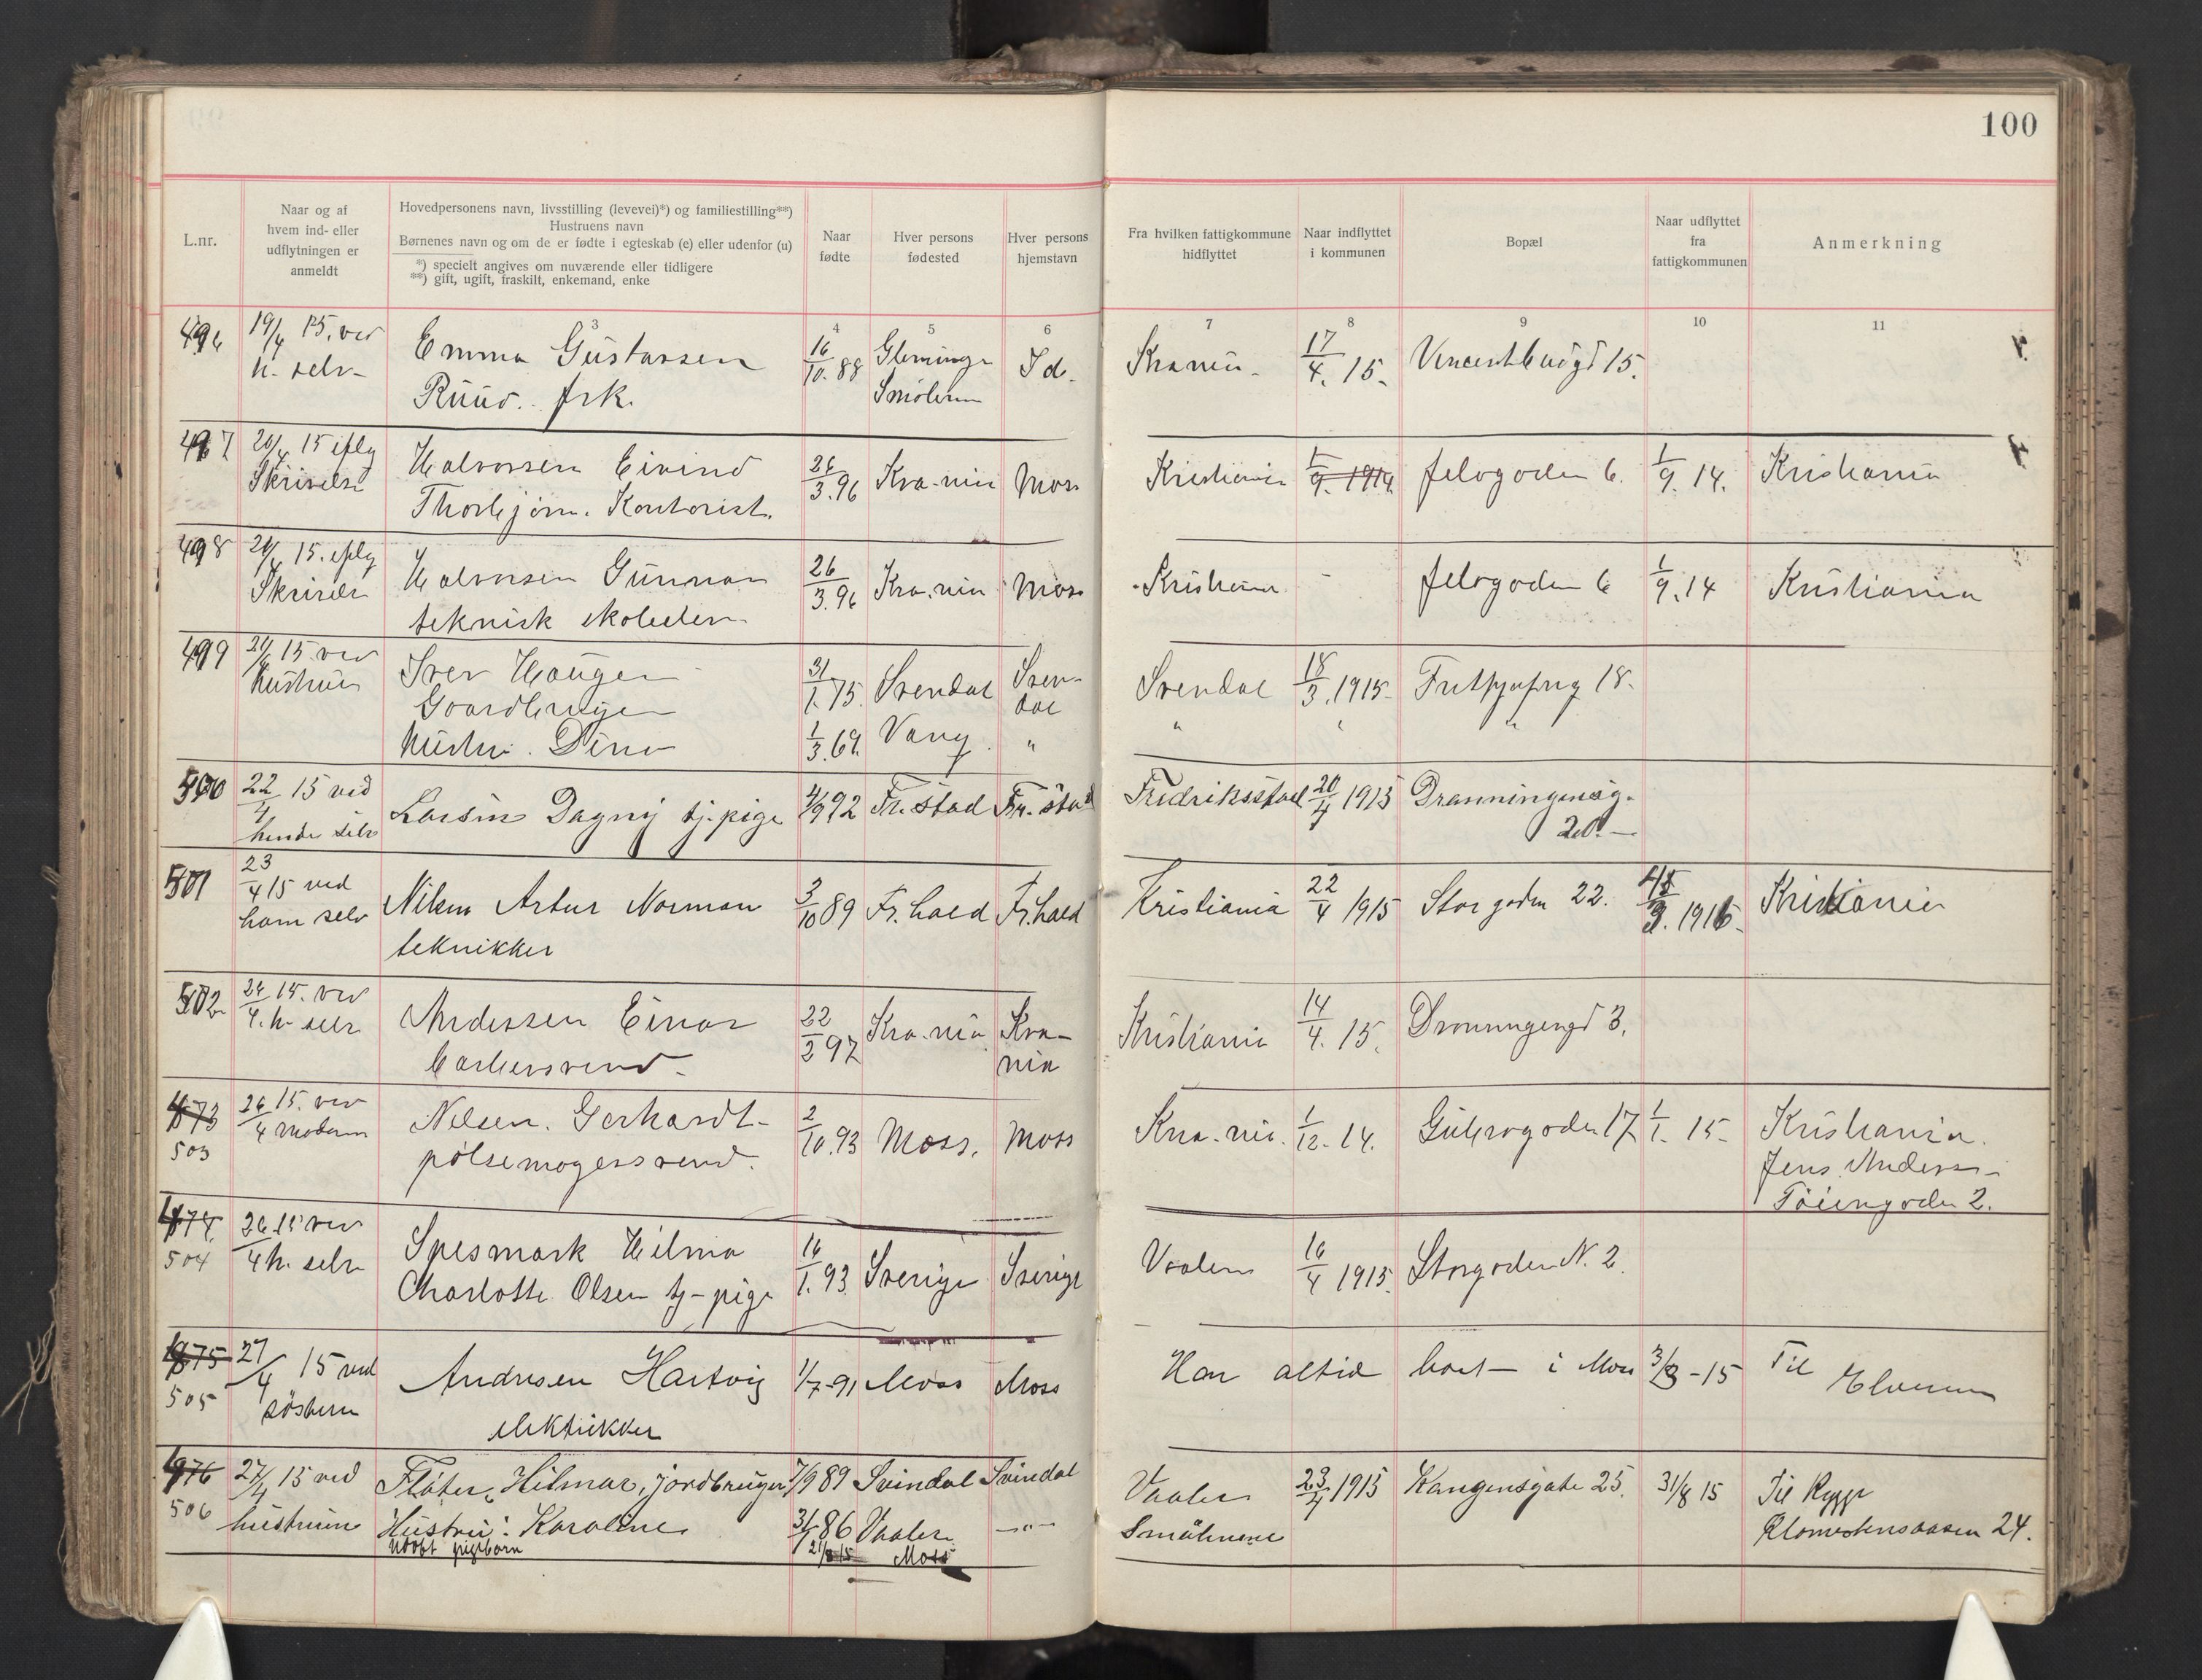 100
L.nr.
Naar og af
hvem ind- eller
udflytningen er
anmeldt
Hovedpersonens navn, livsstilling (levevei)*) og familiestilling**)
Hustruens navn
Børnenes navn og om de er fødte i egteskab (e) eller udenfor (u)
*) specielt angives om nuværende eller tidligere
**) gift, ugift, fraskilt, enkemand, enke
Naar
fødte
Hver persons
fødested
Hver persons
hjemstavn
Fra hvilken fattigkommune
hidflyttet
Naar indflyttet
i kommunen
Bopæl
Naar udflyttet
fra
fattigkommunen
Anmerkning
3 4 5 6 7 8 9 10 11
496 19/4 15. ved Emma Gustavsen 16/10. 88 Id. 17/4. 15. 15.
h. selv Ruud. frk.
497 20/4 15 iflg Halvorsen Eivind 26/3. 96 Kra.nia Moss Kristiania 1/9. 1914 Jelogaden 6. 1/9. 14. Kristiania
Skrivelse Thorbjørn. Kontorist.
498 15. iflg Halvorsen Gunnar 26/3. 96 Kra.nia Moss Kristiania - Jelogaden 6 1/9. 14 Kristiania
Skrivelse teknisk
499 15. ved Iver Haugen 31/1. 75. Svendal Svendal Svendal 18/3. 1915. 18.
hustruen Gaardbruger
Hustru. Dina 1/3. 69. Vang "
500 22/4 15 ved Larsen Dagny tj.pige 92 Fr.stad Fr.stad Fredriksstad 20/4 1915
hende selv 20.
501 23/4 15 ved Nilsen Artur Norman 3/10 89 Fr.hald Fr.hald Kristiania 22/4 1915 Storgaden 22. 1916. Kristiania
ham selv teknikker
502 24/4. 15. ved Andersen Einar 22/2 97 Kra.nia Kra-nia Kristiania 14/4. 15. Dronningengd 3.
h. selv barbersvend.
473 26/4 15. ved Nilsen. Gerhardt 2/10. 93 Moss. Moss Kra.nia. 1/12. 14. 17 1/1. 15. Kristiania.
503 moderen pølsemagersvend. Jens
Tøiengaden 2.
474 26/4 15 ved Spesmark Hilma 16/1. 93. Sverige Sverige Vaaler 16/4 1915. Storgaden N. 2.
504 h. selv Charlotte Olsen tj-pige
475 27/4 15 ved Andresen Hartvig 1/7-91 Moss Moss Har altid boet i Moss 3/3 - 15 Til Elverum
505 søsteren elektrikker
476 27/4 15 ved Flåter, Hilmar, jordbruger 89 Svindal Svindal Vaaler 23/4 1915 25. 31/8 15 Til Rygge
506 hustruen Hustru: Karoline 86 Vaaler —"— 24.
Udøbt pigebarn Moss